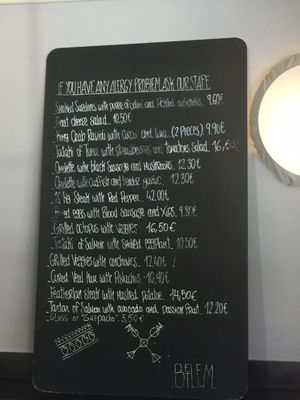 IF YOU HAVE ANY ALLERGY PROBLEM, ASK OUR STAFF
Smoked Sardines with puree of and Pickled 9.60€
Goat cheese salad. 10.50€
King Crab Ravioli with Cocco and lima.. (2 PIECES) 9.90€
Tataki of Tuna with strawberries and tomatoes Salad. 16,50€
Omelette with black Sausage and Mushrooms. 12.30€
Omelette with Codfish and tender garlic. 12.30€
1/2 kg Steak with Red Pepper. 42.00€
Fried eggs with Blood Sausage and 9.80€
Grilled octopus with veggies 16,50€
Tataki of Salmon with smoked eggplant. 10,50€
Grilled Veggies with anchovies. 12.40€
Cured Veal Ham with Pistachios. 10,90€
Featherloin steak with Mashed potatoe. 14,50€
Tartar of Salmon with avocado and passion fruit. 12.20€
Glass of "Gazpacho" 3,50€
BETLEM